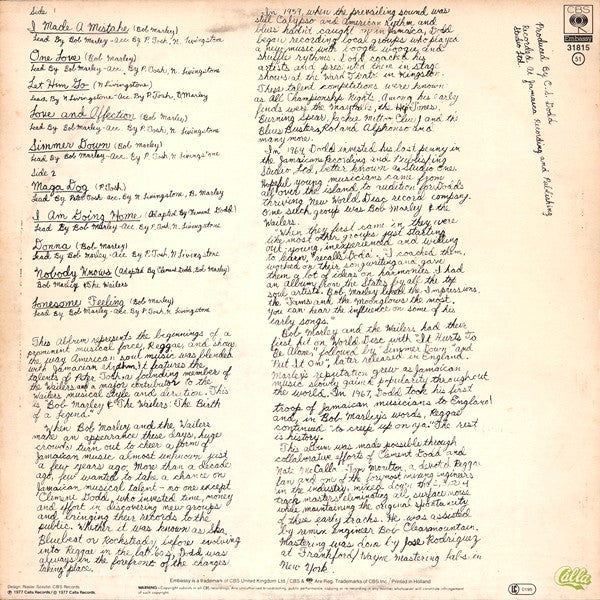 Side 1
I Made A Mistake (Bob Marley)
Lead By Bob Marley-Acc By P. Tosh, N. Livingstone
One Love (Bob Marley)
Lead By Bob Marley-Acc. By P. Tosh, N. Livingstone
Let Him Go (N. Livingstone)
Lead By N. Livingstone-Acc By P. Tosh, B. Marley
Love and Affection (Bob Marley)
Lead By Bob Marley-Acc. By P. Tosh, N. Livingstone
Simmer Down (Bob Marley)
Lead By Bob Marley-Acc. By P. Tosh, N. Livingstone
Side 2
Maga Dog (P. Tosh)
Lead By Peter Tosh-Acc By N. Livingstone, B. Marley
I Am Going Home (Adapted By Clement Dodd)
Lead By Bob Marley-Acc. By P. Tosh, N. Livingstone
Donna (Bob Marley)
Lead By Bob Marley-Acc. By P. Tosh, N. Livingstone
Nobody Knows (Adapted By Clement Dodd, Bob Marley)
Bob Marley & The Wailers
Lonesome Feeling (Bob Marley)
Lead By Bob Marley-Acc. By P. Tosh, N. Livingstone
This Album represents the beginnings of a
prominent musical force, Reggae, and shows
the way American soul music was blended
with Jamaican rhythm. It features the
talents of Peter Tosh, a founding member of
the Wailers and a major contributor to the
Wailers musical style and direction. This
is "Bob Marley & The Wailers: The Birth
of a Legend."
When Bob Marley and the Wailers
make an appearance these days, huge
crowds turn out to cheer a form of
Jamaican music almost unknown just
a few years ago. More than a decade
ago, few wanted to take a chance on
Jamaican musical talent - no one except
Clement Dodd, who invested time, money
and effort in discovering new groups
and bringing their records to the
public. Whether it was known as Ska,
Bluebeat or Rocksteady before evolving
into Reggae in the late 60s, Dodd was
always in the forefront of the changes
taking place.
In 1957, when the prevailing sound was
still Calypso and American Rhythm and
blues hadn't caught on in Jamaica, Dodd
began recording local groups who played
a new music with boogie woogie and
shuffle rhythms. Dodd coached his
artists and presented them in stage
shows at the Ward Theatre in Kingston.
These talent competitions were known
as All Championship Nights. Among his early
finds were the Maytals, the Heptones,
Burning Spear, Jackie Mittoo Clue J and the
Blues Busters, Roland Alphonso and
many more.
In 1964, Dodd invested his last penny in
the Jamaican Recording and Publishing
Studio, Ltd, better known as Studio One.
Hopeful young musicians came from
all over the island to audition for Dodd's
thriving New World Disc record company.
One such group was Bob Marley & the
Wailers.
"When they first came in they were
like most other groups just starting
out: young, inexperienced and willing
to learn," recalls Dodd. "I coached them,
worked on their songwriting and gave
them a lot of ideas on harmonies. I had
an album from the States by all the top
soul artists. Bob Marley liked the Impressions,
the Tams and the Moonglows the most.
You can hear the influence on some of his
early songs."
Bob Marley and the Wailers had their
first hit on World Disc with "It Hurts To
Be Alone," followed by "Simmer Down" and
"Put It On", later released in England.
Marley's reputation grew as Jamaican
music slowly gained popularity throughout
the world. In 1967, Dodd took his first
troop of Jamaican musicians to England
and, in Bob Marley's words, Reggae
continued "to creep up on ya." The rest
is history.
This album was made possible through
collaborative efforts of Clement Dodd and
Nate McCalla. Tom Moulton, a devoted Reggae
fan and one of the foremost mixing engineers
in the industry, mixed down the 2 track
tape masters, eliminating all surface noise
while maintaining the original spontaneity
of these early tracks. He was assisted
by remix Engineer Bob Clearmountain.
Mastering was done by Jose Rodriguez
at Frankford/Wayne Mastering Labs in
New York.
Produced By C.S. Dodd
Recorded at Jamaica Recording and Publishing
Studio Ltd.
CBS
Embassy
31815
51
Design: Roslav Szaybo CBS Records
℗ 1977 Calla Records. © 1977 Calla Records.
Embassy is a trademark of CBS United Kingdom Ltd./CBS & Are Reg. Trademarks of CBS Inc./Printed in Holland
LC 0195
Calla